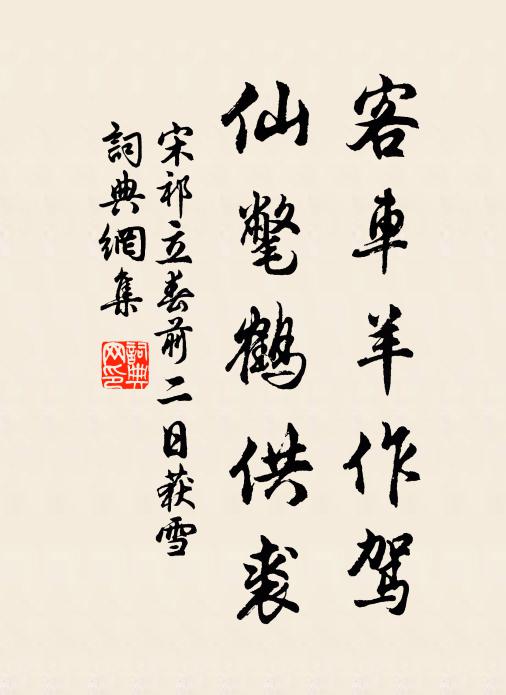 客車羊作駕
仙氅鶴供裘
宋祁立春前二日获雪
詞典網集
詞典網印